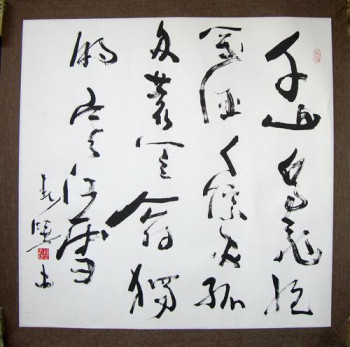 千山鳥飛絕
萬徑人蹤滅孤
舟蓑笠翁獨
釣寒江雪